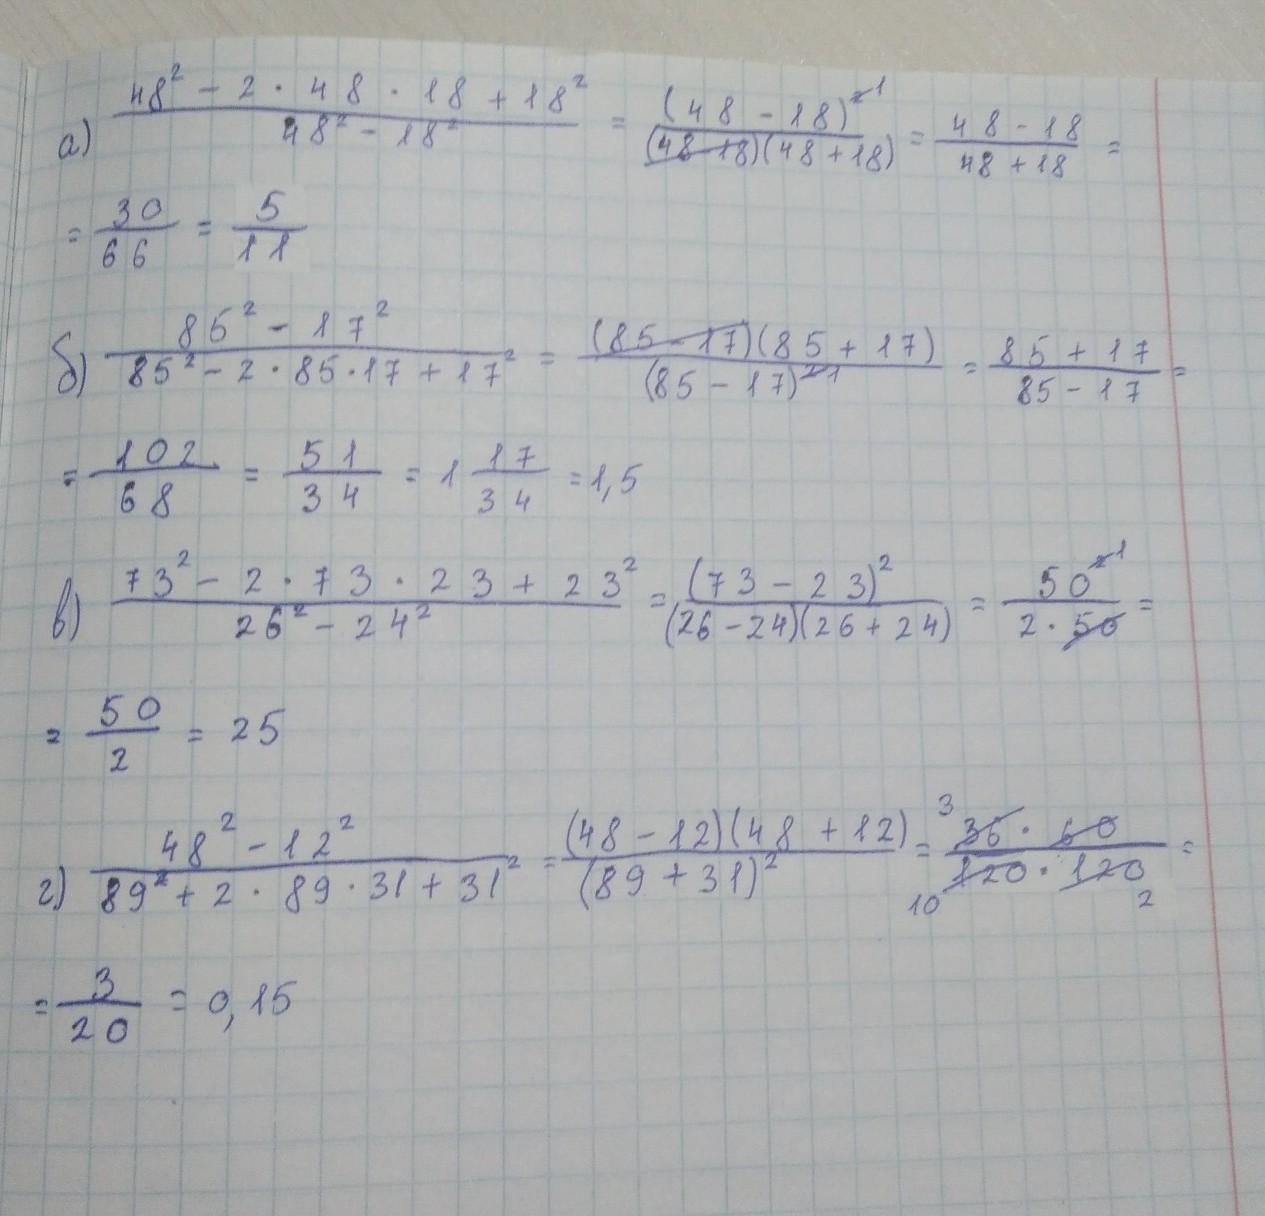 а) (48² - 2 · 48 · 18 + 18²)/(48² - 18²) = (48 - 18)²¹/((48-18)(48+18)) = (48-18)/(48+18) =
= 30/66 = 5/11
б) (85² - 17²)/(85² - 2 · 85 · 17 + 17²) = ((85-17)(85+17))/(85-17)²¹ = (85+17)/(85-17) =
= 102/68 = 51/34 = 1 17/34 = 1,5
в) (73² - 2 · 73 · 23 + 23²)/(26² - 24²) = (73-23)²/((26-24)(26+24)) = 50²¹/(2 · 50) =
= 50/2 = 25
г) (48² - 12²)/(89² + 2 · 89 · 31 + 31²) = ((48-12)(48+12))/(89+31)² = 3 36 · 60/(10 120 · 120 2) =
= 3/20 = 0,15